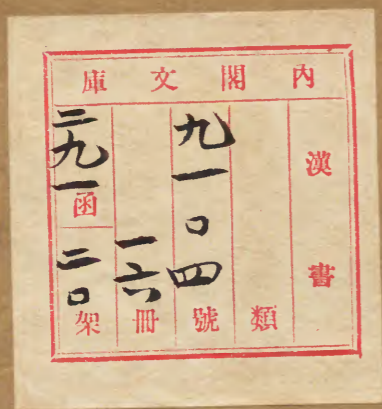 內閣文庫
漢書
類
九一〇四號
一六冊
二九一函二〇架